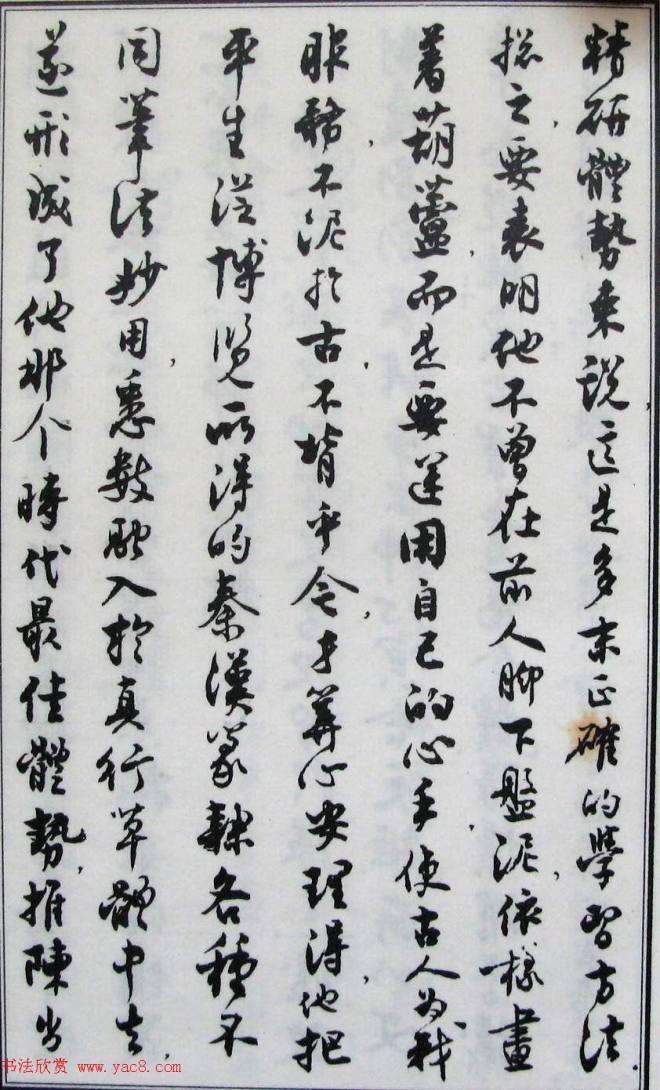 精研體勢來說，這是多末正確的學習方法.
總之，要表明他不曾在前人脚下盤泥，依樣畫
著葫蘆，而是要運用自己的心手，使古人为我
服務，不泥於古，不背乎今，才算心安理得，他把
平生從博覽所得的秦漢篆隸各種不
同筆法妙用，悉數融入於真行草體中去，
遂形成了他那个時代最佳體勢，推陳出
书法欣赏 www.yac8.com